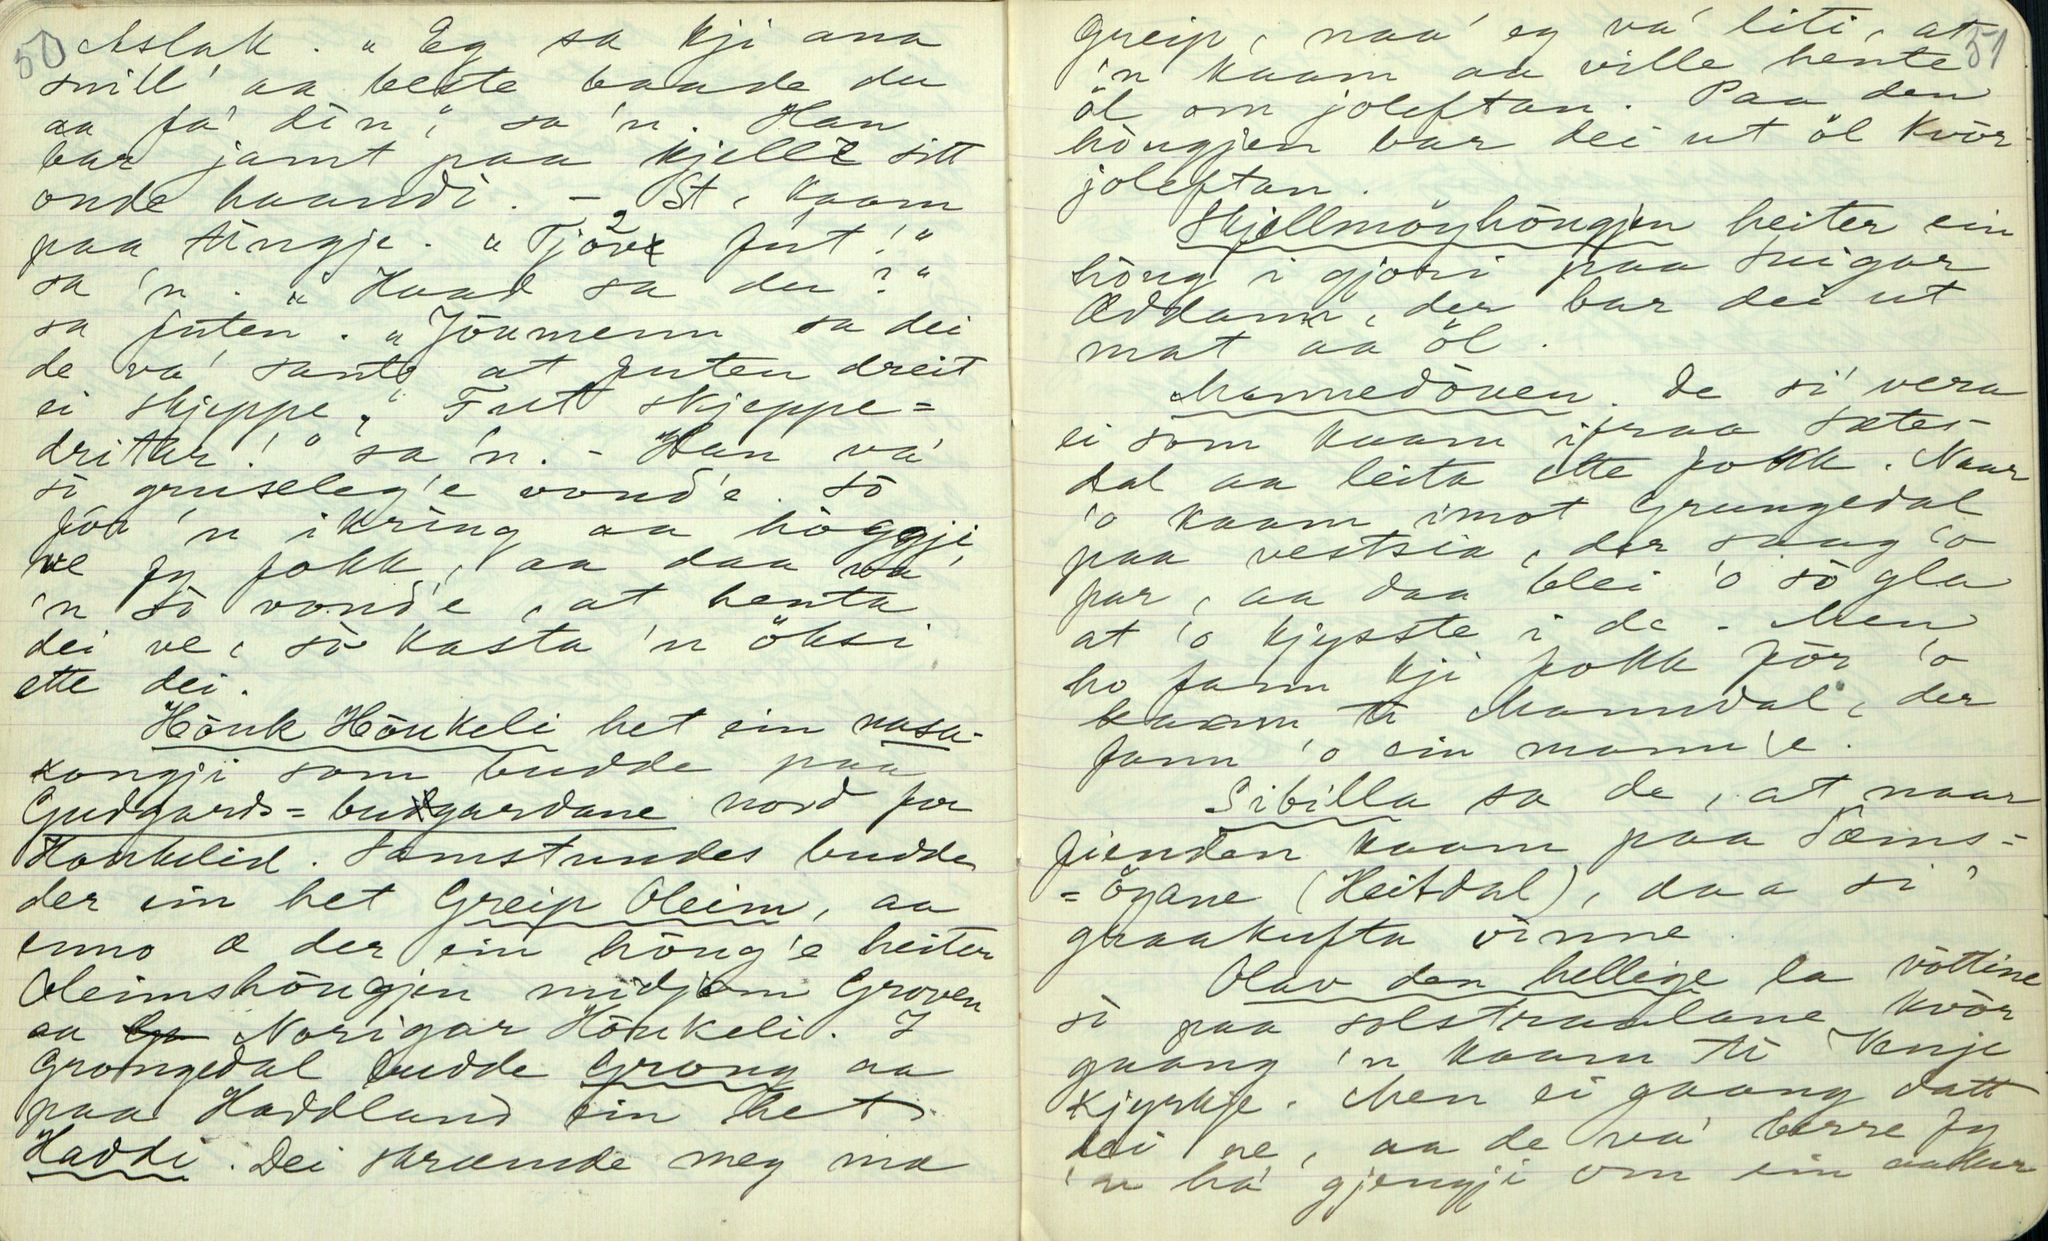 50
Aslak. "Eg sa kji ana
snill' aa beste baade du
aa fa' din," sa 'n. Han
bar jamt paa kjelle sitt
onde haandi. – St, kaam
paa tingje. "Tjöv2 fut!"
sa 'n. "Haad sa du?"
sa futen. "Jöumenn sa dei
de va' sant at futen dreit
ei skjeppe." "Fut skjeppe=
dritar!" sa 'n. – Han va'
so gruseleg'e vond'e. So
fór 'n ikring aa höggji
ve fy fokk, aa daa va'
'n so vond'e, at henta
dei ve, so kasta 'n öksi
ette dei.
Höuk Höukeli het ein nasa-
kongji som budde paa
Gudgards=budgardane nord for
Haukelid. Samstundes budde
der ein het Greip Oleim, aa
enno æ der ein höug'e heiter
Oleimshöugjen midjom Groven
aa Norigar Höukeli. I
Grongedal budde Grong aa
paa Haddland ein het
Haddi. Dei skræmde meg mæ
51
Greip, naa' eg va' liti, at
'n kaam aa ville hente
öl om joleftan. Paa den
höugjen bar dei ut öl kvör
joleftan.
Skjellmöyhöugjen heiter ein
höug i gjori paa Suigar
Øddann, der bar dei ut
mat aa öl.
Mannedöuen. De si' vera
ei som kaam ifraa Sætes-
dal aa leita ette fokk. Naar
'o kaam imot Grungedal
paa vestsia, der saag 'o
far, aa daa blei 'o so gla
at 'o kjysste i de. Men
ho fann kji fokk för 'o
kaam ti Manndal, der
fann 'o ein mann'e.
Sibilla sa de, at naar
fienden kaam paa Sæms=
=öyane (Heitdal), daa si'
graakufta vinne.
Olav den hellige la vöttine
si' paa solstraalane kvör
gaang 'n kaam ti Vinje
kjyrkje. Men ei gaang datt
dei ne, aa de va' berre fy
'n ha' gjengji om ein aaker